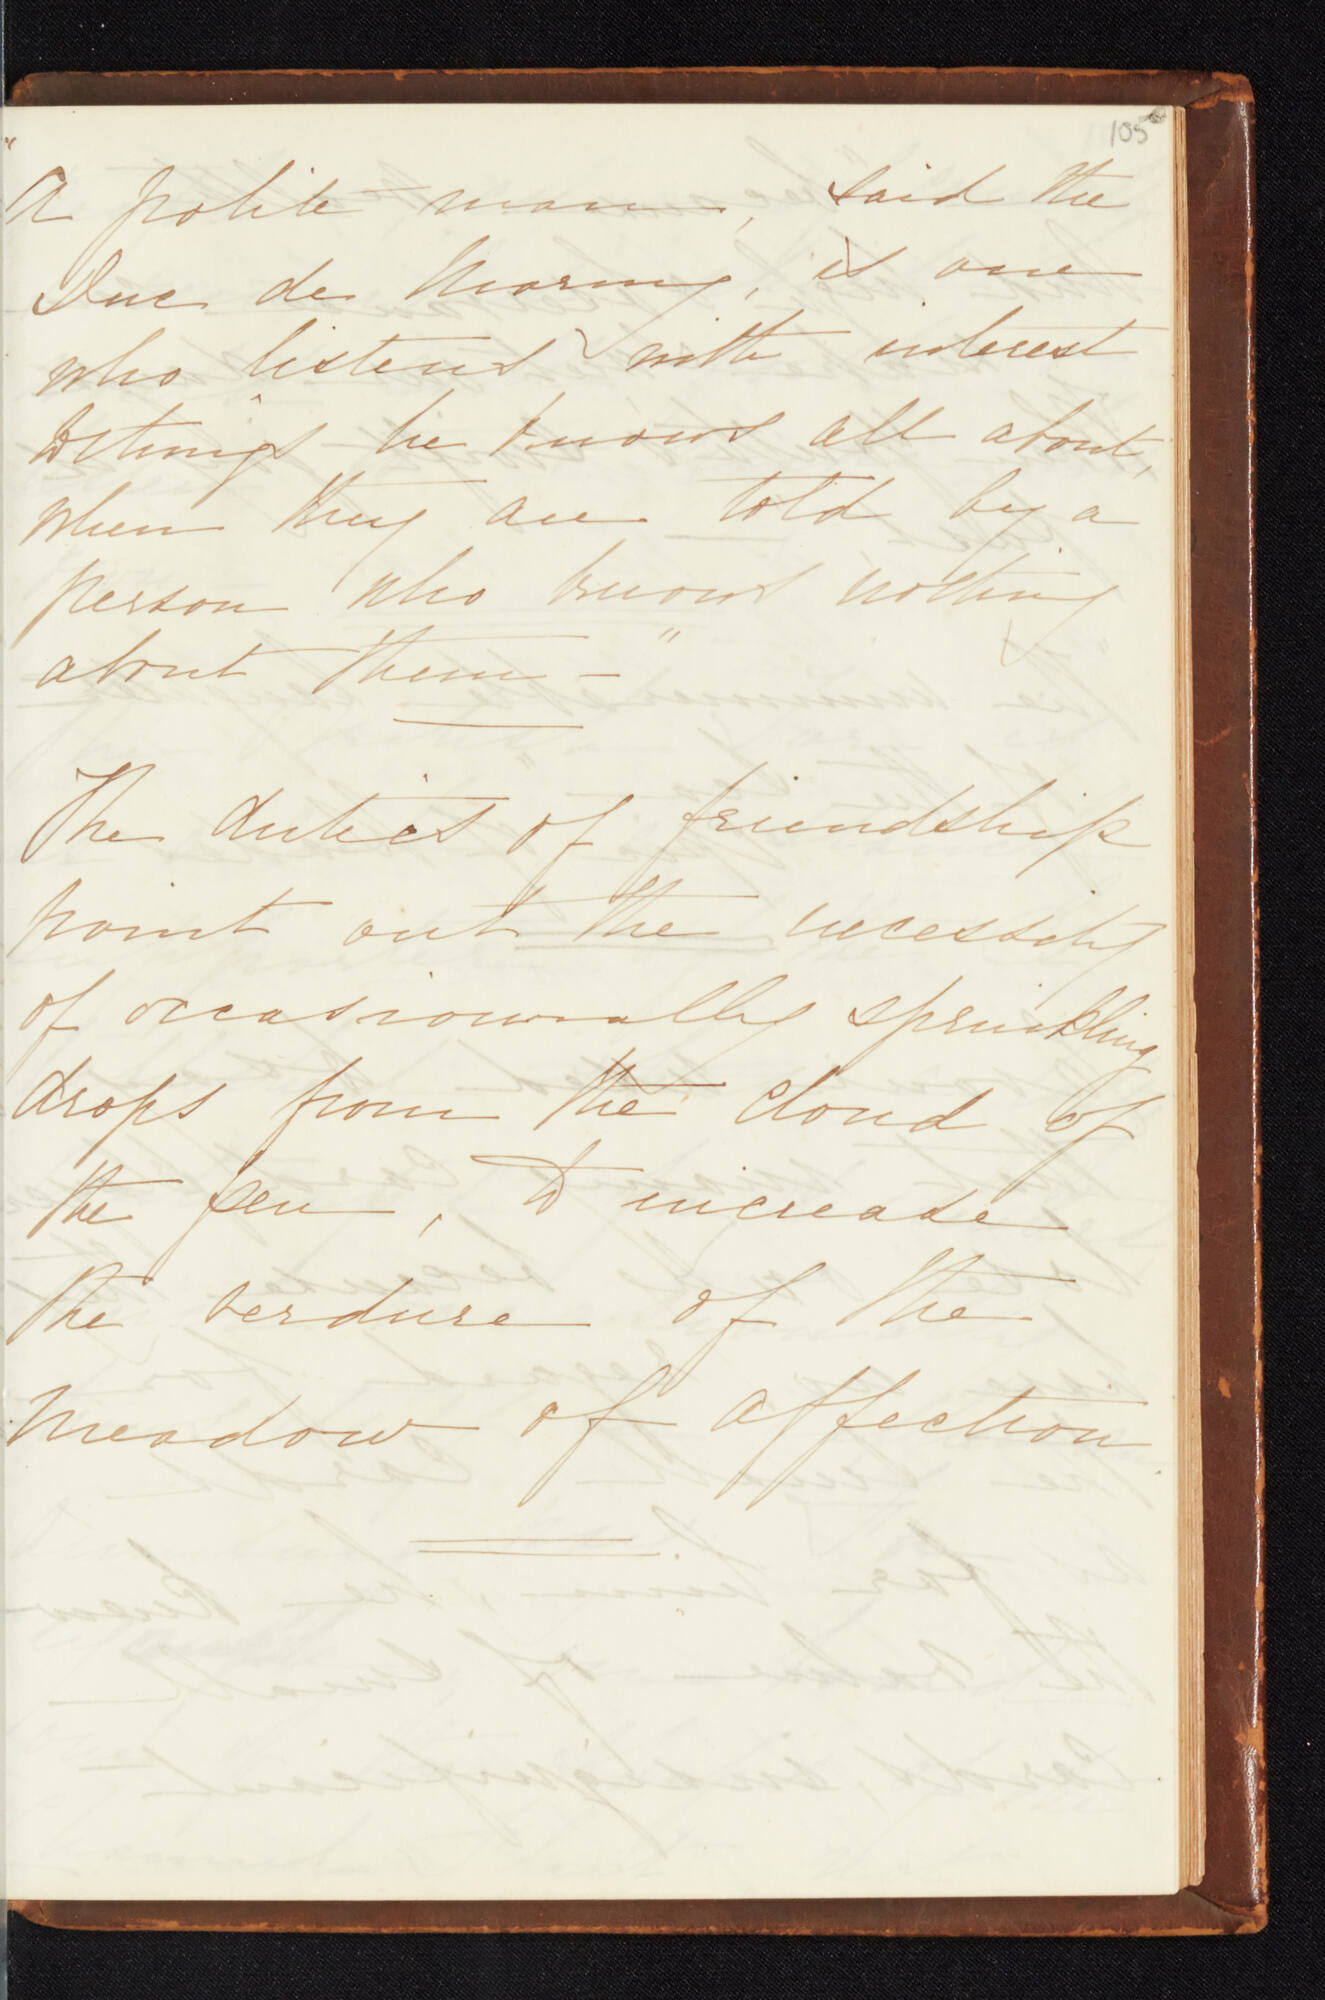 105
"A polite man, said the
Duc de Morny, is one
who listens with interest
to things he knows all about,
when they are told by a
person who knows nothing
about them – "
The duties of friendship
point out the necessity
of occasionally sprinkling
drops from the cloud of
the pen, to increase
the verdure of the
meadow of affection.